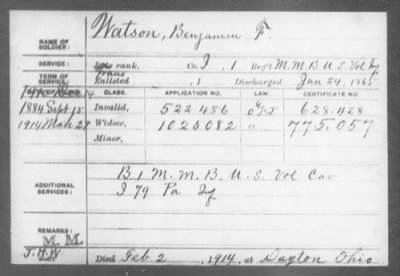 NAME OF SOLDIER: Watson, Benjamin F.
SERVICE: Late rank, Co. I, 1 Reg't M.M.B. U.S. Vol Inf
TERM OF SERVICE: Trans Enlisted , 1 Discharged Jan 24, 1865
DATE OF FILING. CLASS. APPLICATION NO. LAW. CERTIFICATE NO.
1884 Sept 18 Invalid, 522 486 628.428
1914 Mch 27 Widow, 1020082 a 775.057
Minor,
ADDITIONAL SERVICES: B 1 M.M.B. U.S. Vol Cav
I 79 Pa Inf
REMARKS: M.M.
J.H.W. Died Feb 2, 1914, at Dayton Ohio